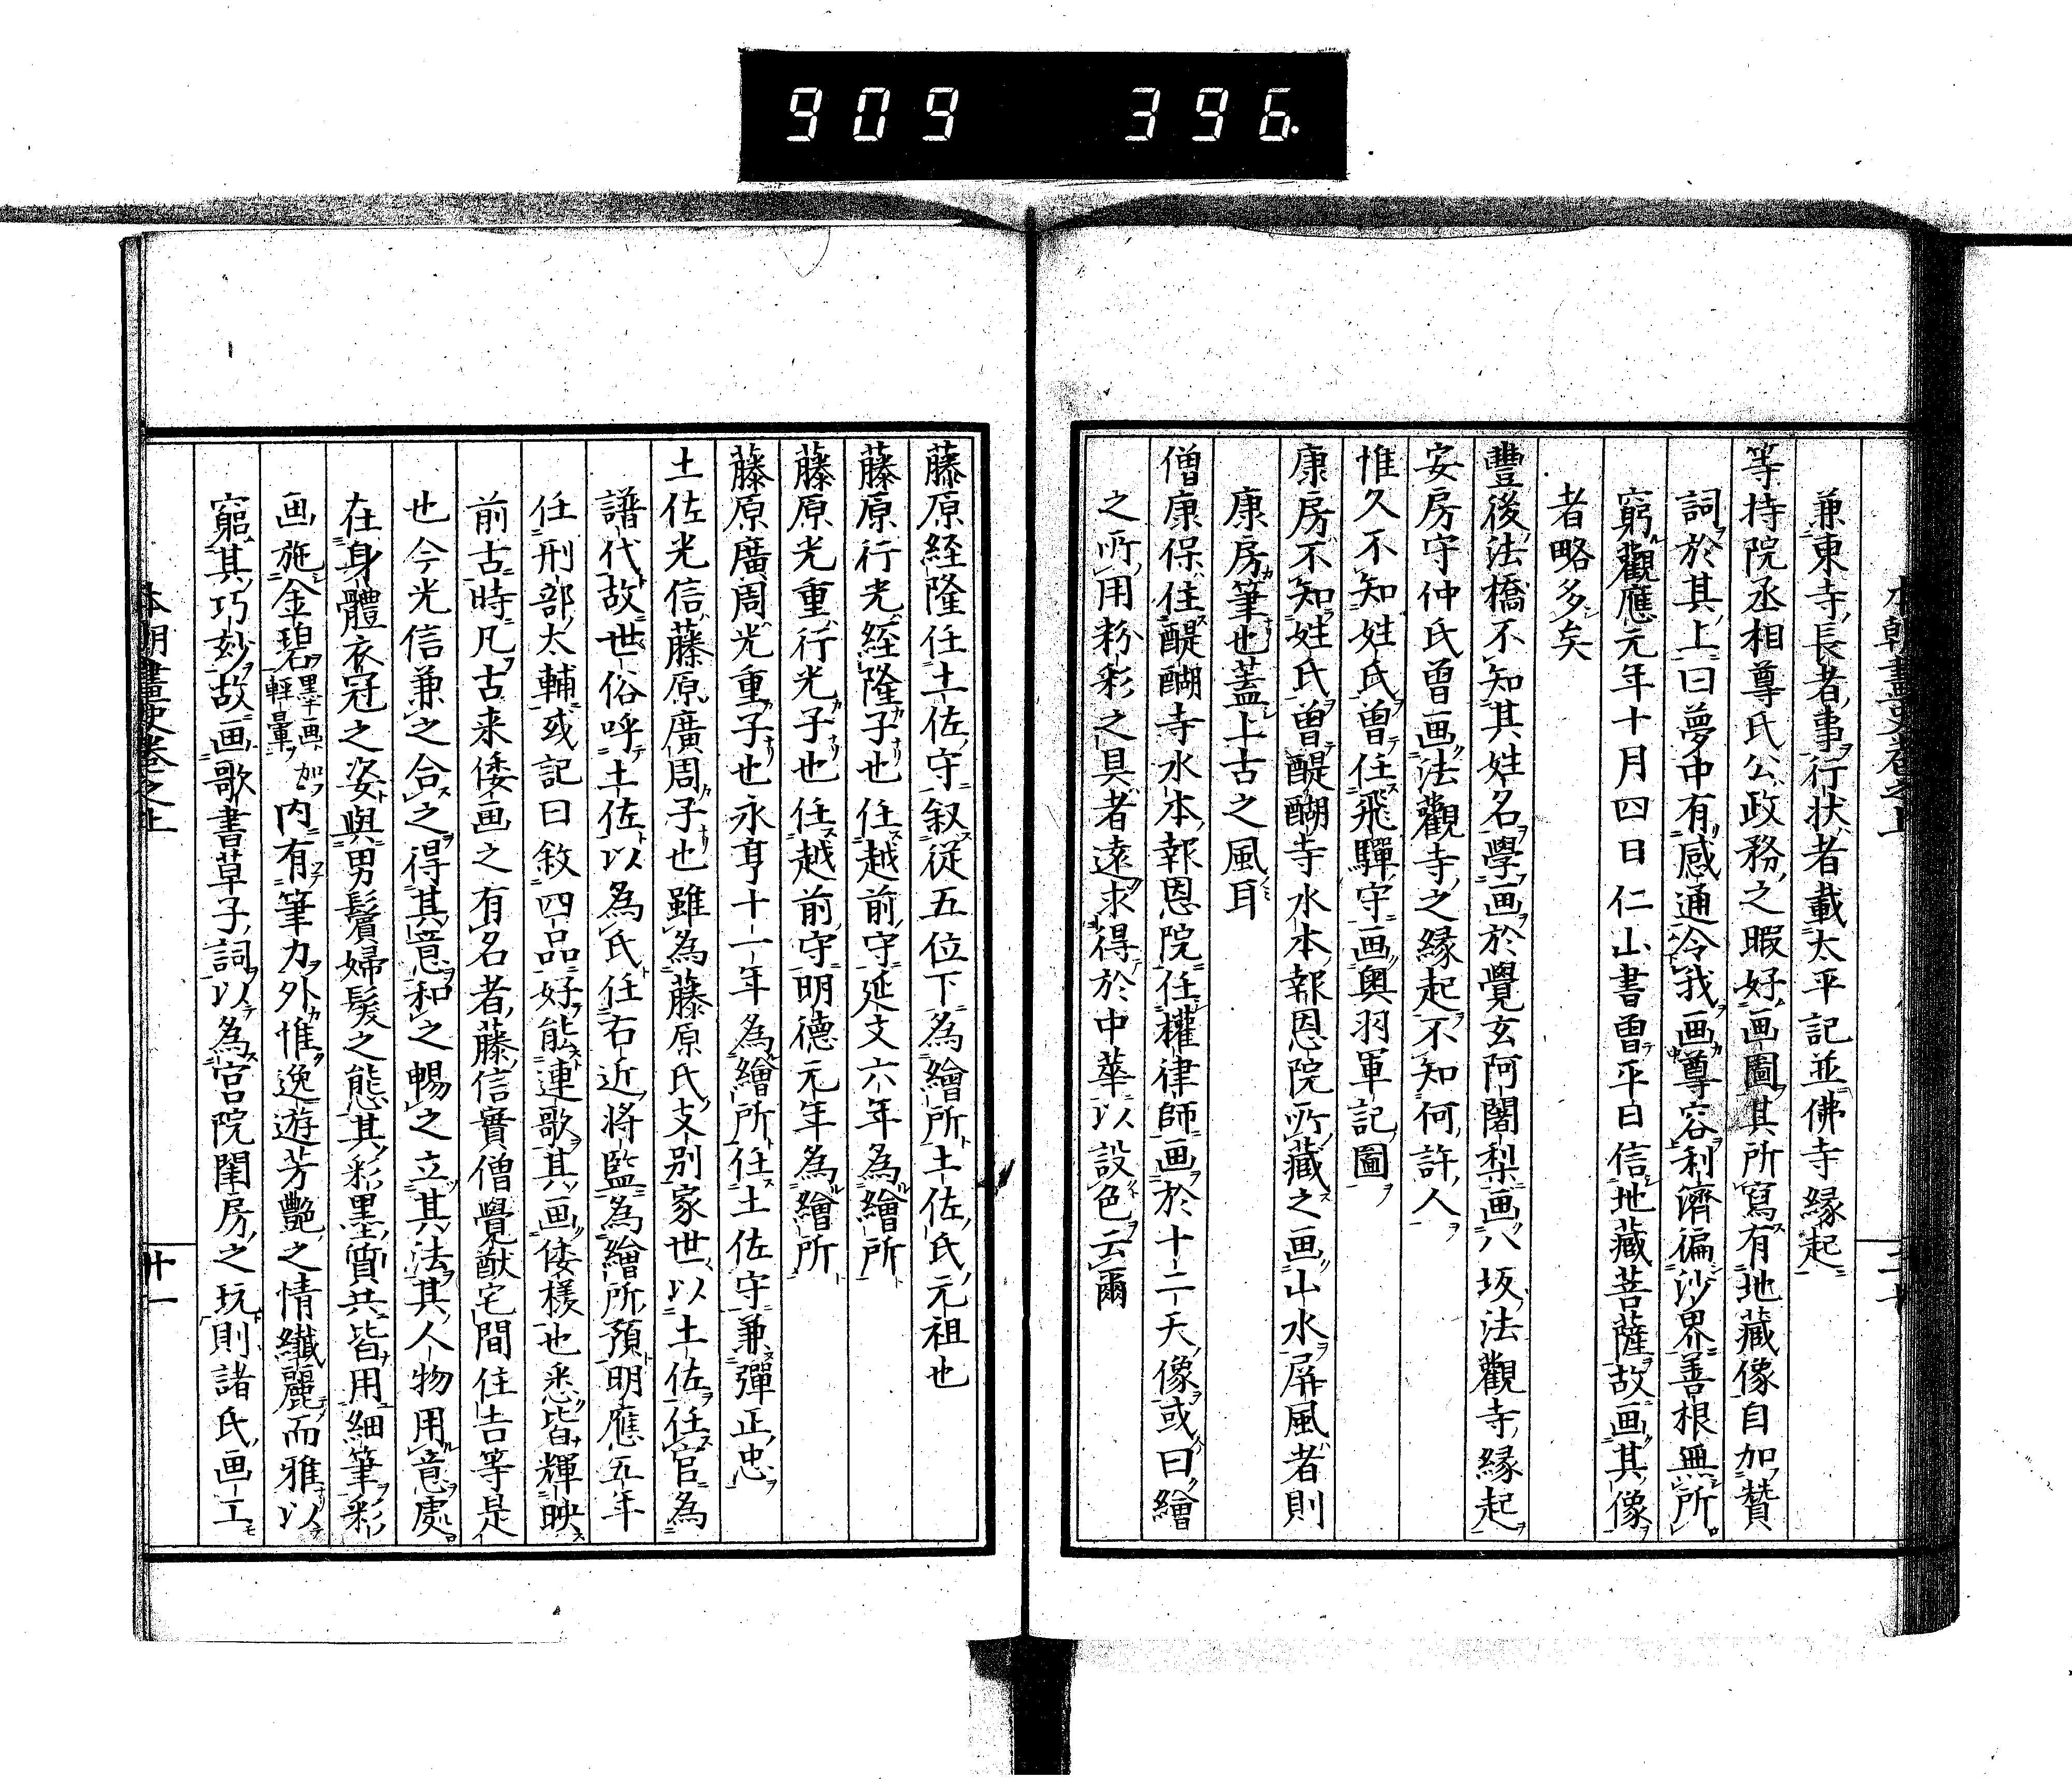 909 396
本朝畫史卷之上
兼東寺長者事行状者載太平記並佛寺縁起
等持院丞相尊氏公政務之暇好画圖其所寫有地藏像自加贊
詞於其上曰夢中有感通令我画尊容利濟徧沙界善根無所
窮觀應元年十月四日仁山書曽平日信地藏菩薩故画其像
者略多矣
豐後法橋不知其姓名學画於覺玄阿闍梨画八坂法觀寺縁起
安房守仲氏曽画法觀寺之縁起不知何許人
惟久不知姓氏曽任飛驒守画奥羽軍記圖
康房不知姓氏曽醍醐寺水本報恩院所藏之画山水屏風者則
康房筆也蓋上古之風耳
僧康保住醍醐寺水本報恩院任權律師画於十二天像或曰繪
之所用粉彩之具者遠求得於中華以設色云爾
藤原経隆任土佐守叙從五位下為繪所土佐氏元祖也
藤原行光経隆子也任越前守延文六年為繪所
藤原光重行光子也任越前守明德元年為繪所
藤原廣周光重子也永亨十一年為繪所任土佐守兼彈正忠
土佐光信藤原廣周子也雖為藤原氏支别家世以土佐任官為
譜代故世俗呼土佐以為氏任右近將監為繪所預明應五年
任刑部太輔或記曰敘四品好能連歌其画倭様也悉皆輝映
前古時凡古来倭画之有名者藤信實僧覺猷宅間住吉等是
也今光信兼之合之得其意和之暢之立其法其人物用意處
在身體衣冠之姿與男鬢婦髪之態其彩墨質共皆用細筆彩
画施金碧墨画加輕暈内有筆力外惟逸遊芳艷之情纖麗而雅以
窮其巧妙故画歌書草子詞以為宮院閨房之玩則諸氏画工
本朝畫史卷之上
廿一